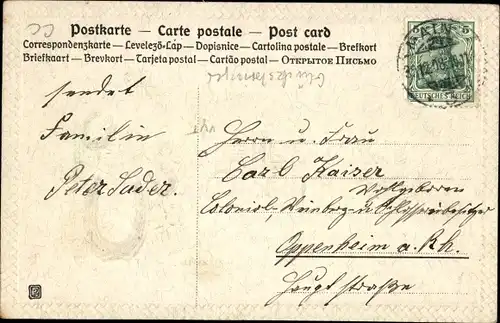 Postkarte – Carte postale – Post card
Correspondenzkarte – Levelező-Lap – Dopisnice – Cartolina postale – Brefkort
Briefkaart – Brevkort – Tarjeta postal – Cartão postal – ОТКРЫТОЕ ПИСЬМО
MAINZ
5 5
DEUTSCHES REICH
sendet
Familie
Peter Sader.
Herrn u. Frau
Carl Kaiser
Colonial-, Weinberg- u.
Oppenheim a. Rh.
Hauptstraße